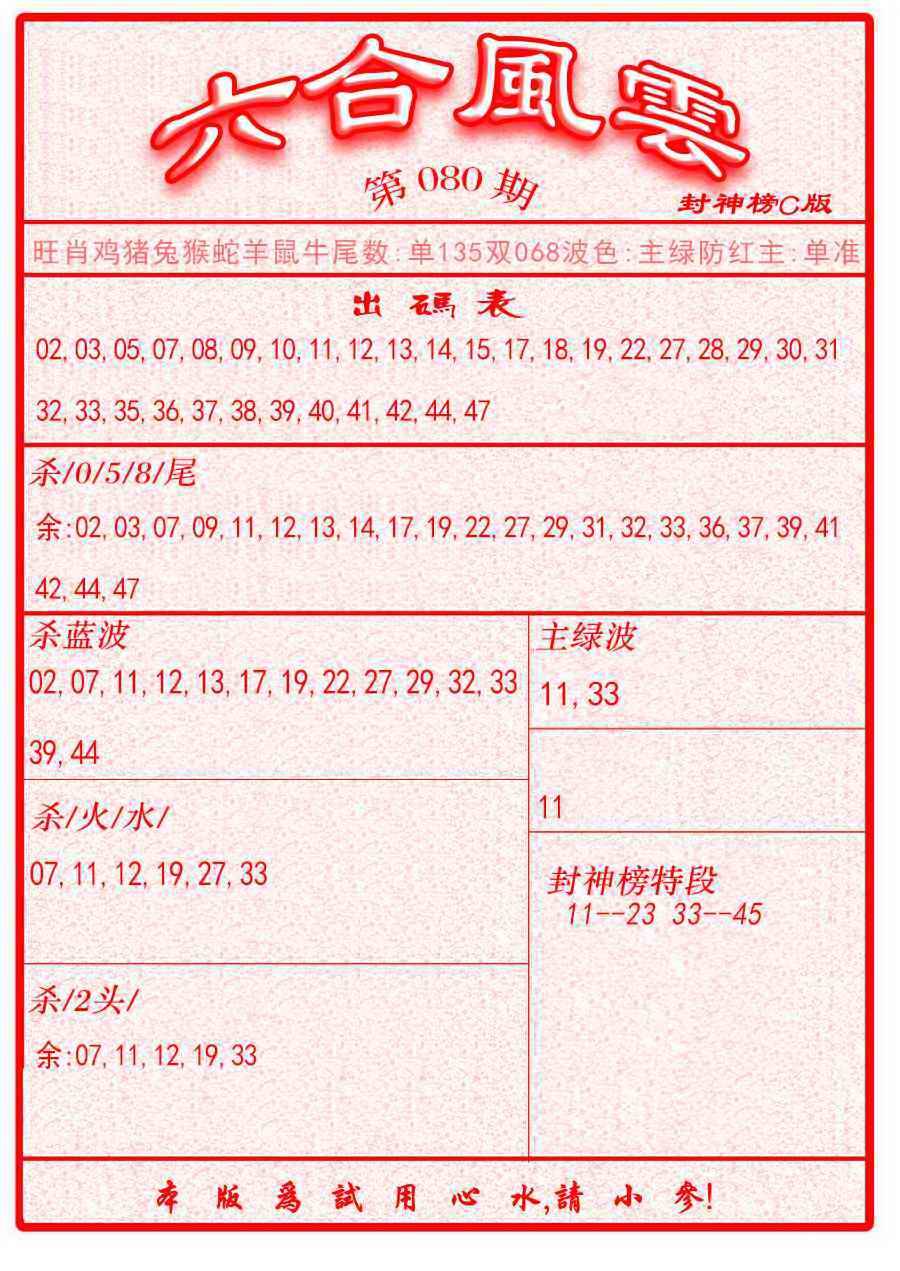 六合風雲
第080期
封神榜C版
旺肖鸡猪兔猴蛇羊鼠牛尾数:单135双068波色:主绿防红主:单准
出碼表
02,03,05,07,08,09,10,11,12,13,14,15,17,18,19,22,27,28,29,30,31
32,33,35,36,37,38,39,40,41,42,44,47
杀/0/5/8/尾
余:02,03,07,09,11,12,13,14,17,19,22,27,29,31,32,33,36,37,39,41
42,44,47
杀蓝波
02,07,11,12,13,17,19,22,27,29,32,33
39,44
主绿波
11,33
11
杀/火/水/
07,11,12,19,27,33
封神榜特段
11--23 33--45
杀/2头/
余:07,11,12,19,33
本版爲試用心水,請小參!